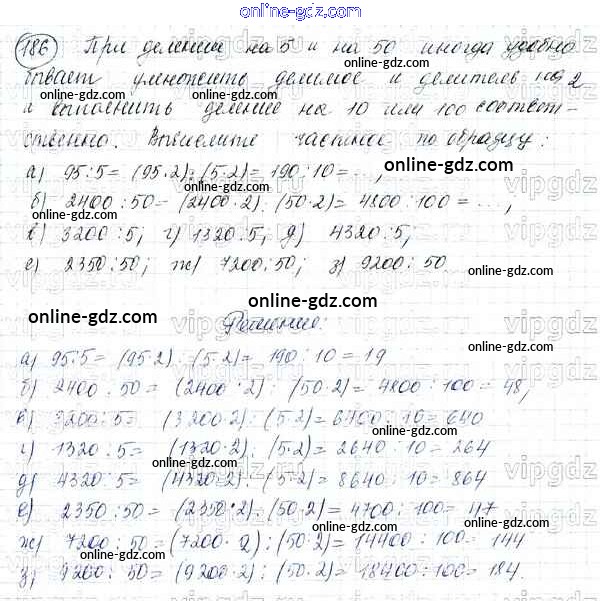 online-gdz.com
186 При делении на 5 и на 50 иногда удобно
бывает умножить делимое и делитель на 2
и выполнить деление на 10 или 100 соответ-
ственно. Вычислите частное по образцу:
а) 95:5=(95·2):(5·2)=190:10=...,
online-gdz.com
б) 2400:50=(2400·2):(50·2)=4800:100=...,
online-gdz.com
в) 3200:5; г) 1320:5; д) 4320:5;
е) 2350:50; ж) 7200:50; з) 9200:50
online-gdz.com
online-gdz.com
Решение:
online-gdz.com
а) 95:5=(95·2):(5·2)=190:10=19
online-gdz.com
б) 2400:50=(2400·2):(50·2)=4800:100=48,
online-gdz.com
в) 3200:5=(3200·2):(5·2)=6400:10=640
г) 1320:5=(1320·2):(5·2)=2640:10=264
online-gdz.com
д) 4320:5=(4320·2):(5·2)=8640:10=864
е) 2350:50=(2350·2):(50·2)=4700:100=47
online-gdz.com
ж) 7200:50=(7200·2):(50·2)=14400:100=144
online-gdz.com
з) 9200:50=(9200·2):(50·2)=18400:100=184.
online-gdz.com
vipgdz